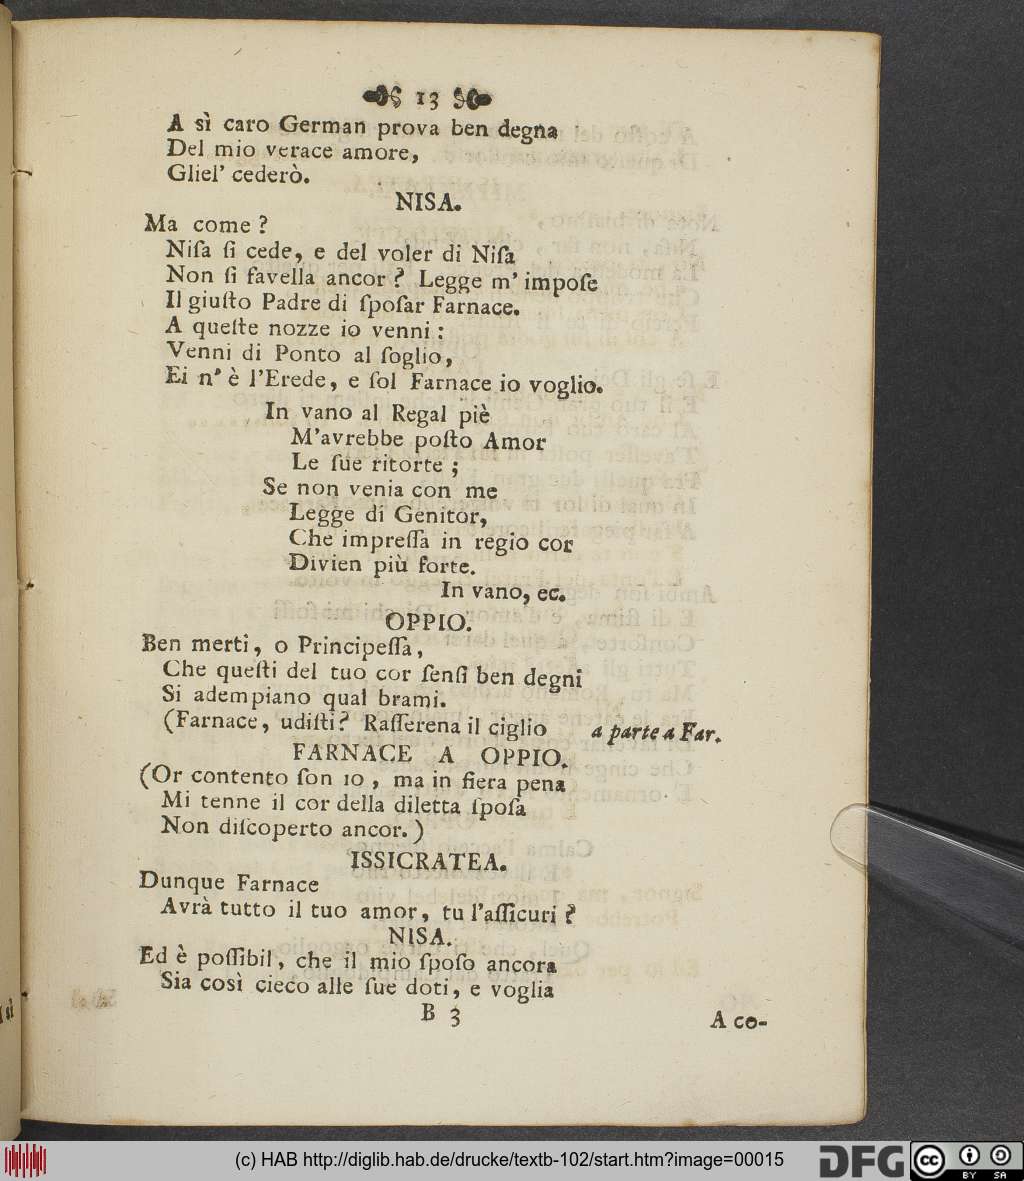 13
A sì caro German prova ben degna
Del mio verace amore,
Gliel' cederò.
NISA.
Ma come?
Niſa ſi cede, e del voler di Niſa
Non ſi favella ancor? Legge m' impoſe
Il giuſto Padre di ſpoſar Farnace.
A queſte nozze io venni:
Venni di Ponto al ſoglio,
Ei n' è l'Erede, e ſol Farnace io voglio.
In vano al Regal piè
M'avrebbe poſto Amor
Le ſue ritorte;
Se non venia con me
Legge di Genitor,
Che impreſſa in regio cor
Divien più forte.
In vano, ec.
OPPIO.
Ben merti, o Principeſſa,
Che queſti del tuo cor ſenſi ben degni
Si adempiano qual brami.
(Farnace, udiſti? Raſſerena il ciglio a parte a Far.
FARNACE A OPPIO.
(Or contento ſon io, ma in fiera pena
Mi tenne il cor della diletta ſpoſa
Non diſcoperto ancor.)
ISSICRATEA.
Dunque Farnace
Avrà tutto il tuo amor, tu l'aſſicuri?
NISA.
Ed è poſſibil, che il mio ſpoſo ancora
Sia così cieco alle ſue doti, e voglia
B 3 A co-
(c) HAB http://diglib.hab.de/drucke/textb-102/start.htm?image=00015
DFG
cc BY SA